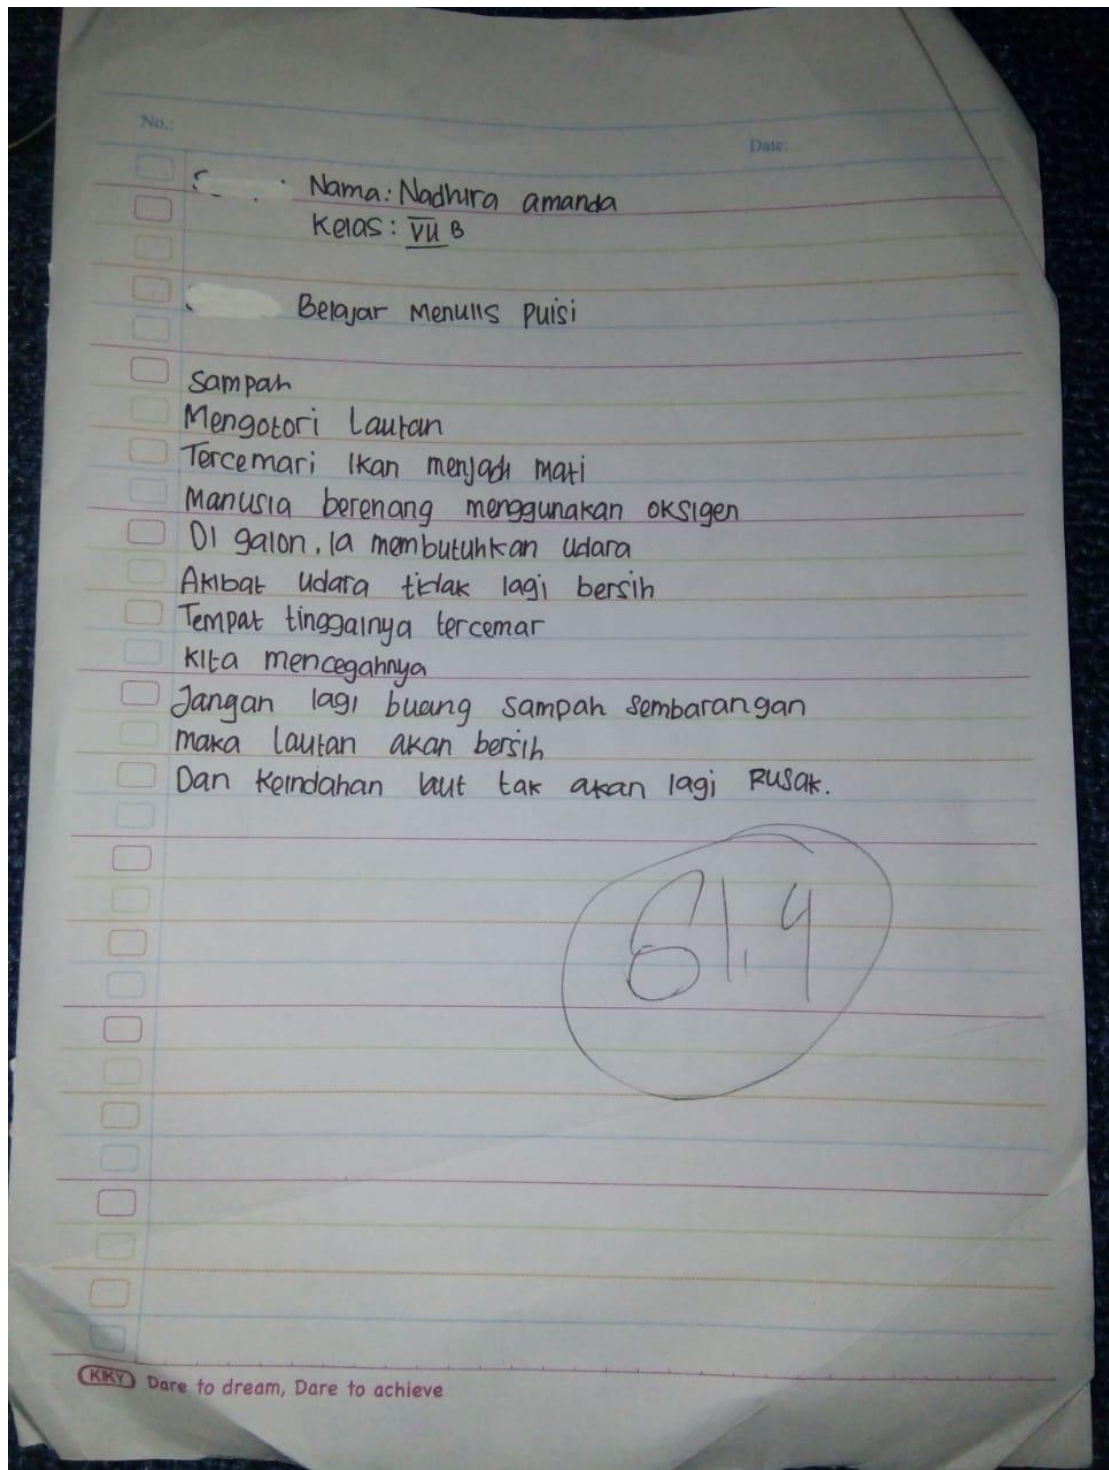 No.:
Date:
Nama: Nadhira amanda
Kelas: VII B
Belajar Menulis Puisi
Sampah
Mengotori Lautan
Tercemari Ikan menjadi mati
Manusia berenang menggunakan oksigen
Di galon, Ia membutuhkan udara
Akibat udara tidak lagi bersih
Tempat tinggalnya tercemar
Kita mencegahnya
Jangan lagi buang sampah sembarangan
maka lautan akan bersih
Dan Keindahan laut tak akan lagi Rusak.
61.4
KIKY Dare to dream, Dare to achieve